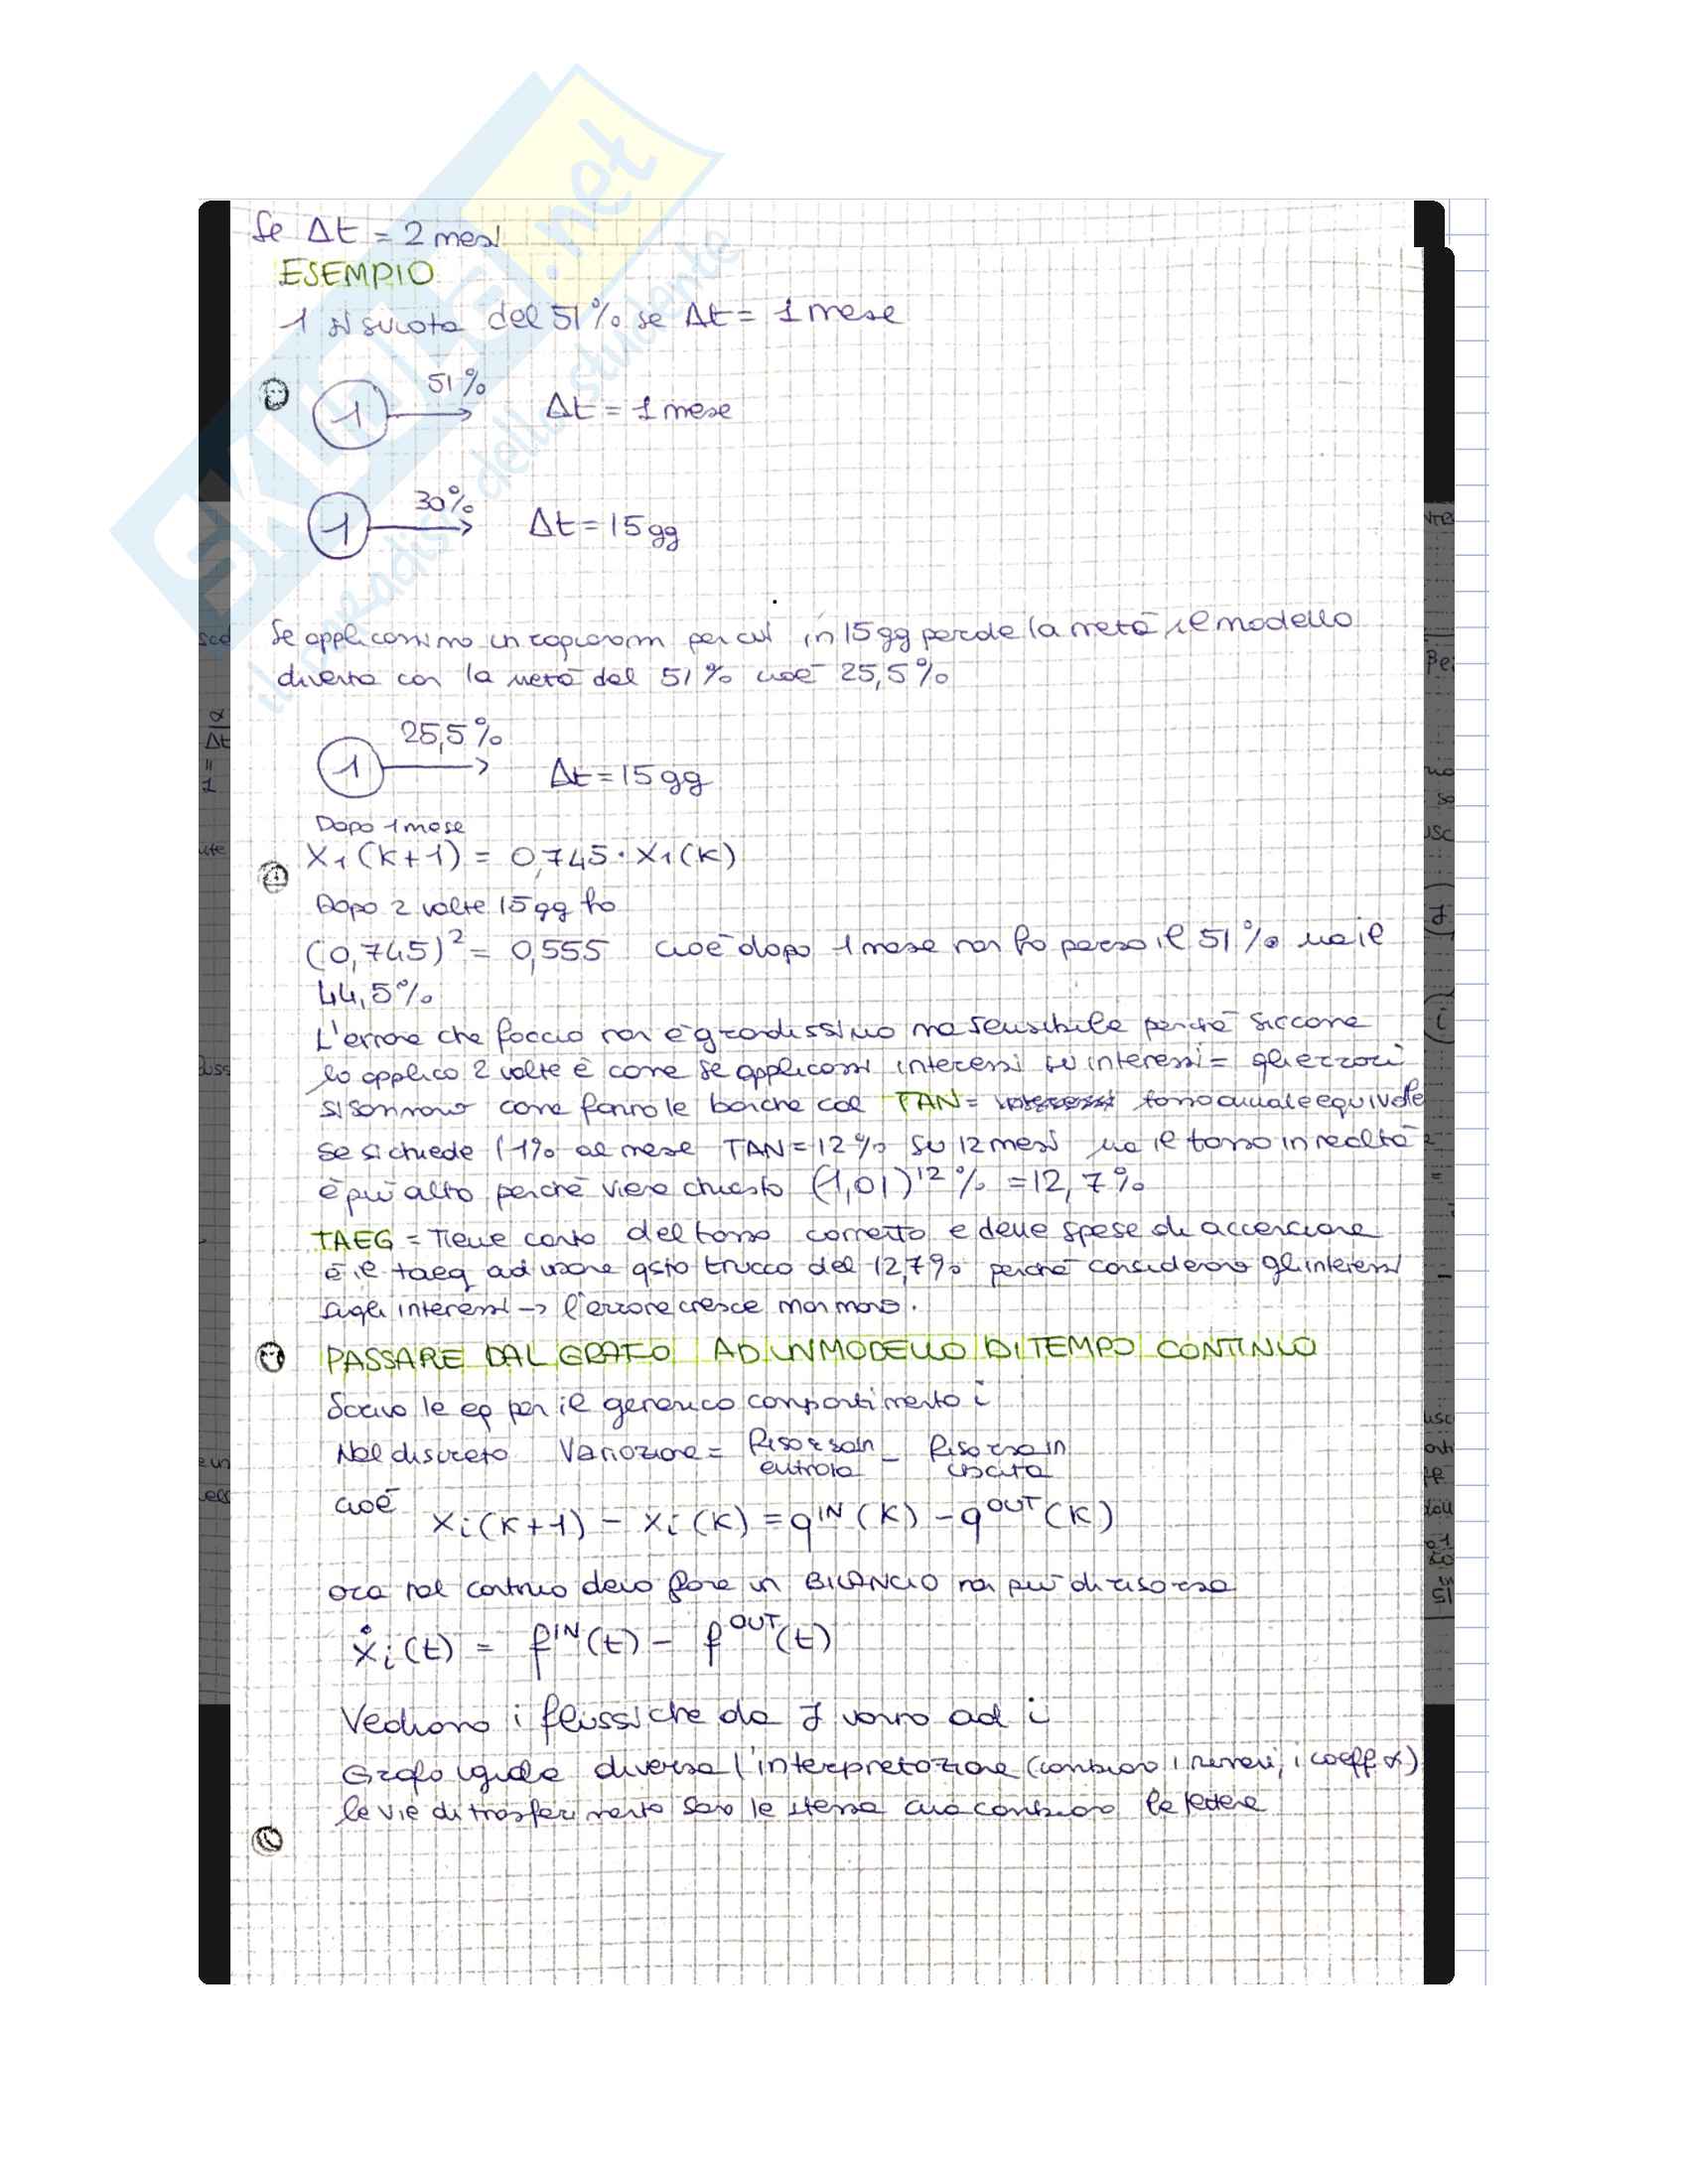 Se Δt = 2 mesi
ESEMPIO
1 si svuota del 51% se Δt = 1 mese
1 51% Δt = 1 mese
1 30% Δt = 15 gg
Se applicassimo un per cui in 15 gg perde la metà il modello
diventa con la metà del 51% cioè 25,5%
1 25,5% Δt = 15 gg
Dopo 1 mese
X₁(K+1) = 0,745 · X₁(K)
Dopo 2 volte 15 gg ho
(0,745)² = 0,555 cioè dopo 1 mese non ho perso il 51% ma il
44,5%
L'errore che faccio non è grandissimo ma sensibile perché siccome
lo applico 2 volte è come se applicassi interessi su interessi = gli errori
si sommano come fanno le banche col TAN = tasso annuale equivale
Se si chiede l'1% al mese TAN = 12% su 12 mesi ma il tasso in realtà
è più alto perché viene chiesto (1,01)¹²% = 12,7%
TAEG = Tiene conto del tasso corretto e delle spese di accensione
è il taeg ad usare qsto trucco del 12,7% perché considerano gli interessi
sugli interessi → l'errore cresce man mano.
PASSARE DAL GRAFO AD UN MODELLO DI TEMPO CONTINUO
Scrivo le eq per il generico compartimento i
Nel discreto Variazione = Risorsa in entrata - Risorsa in uscita
cioè Xi(K+1) - Xi(K) = qᴵᴺ(K) - qᴼᵁᵀ(K)
ora nel continuo devo fare un BILANCIO non più di risorsa
ẋi(t) = fᴵᴺ(t) - fᴼᵁᵀ(t)
Vediamo i flussi che da J vanno ad i
Grafo uguale diversa l'interpretazione (cambiano i numeri, i coeff α)
le vie di trasferimento sono le stesse cambiano le lettere
skuola.net
il paradiso dello studente